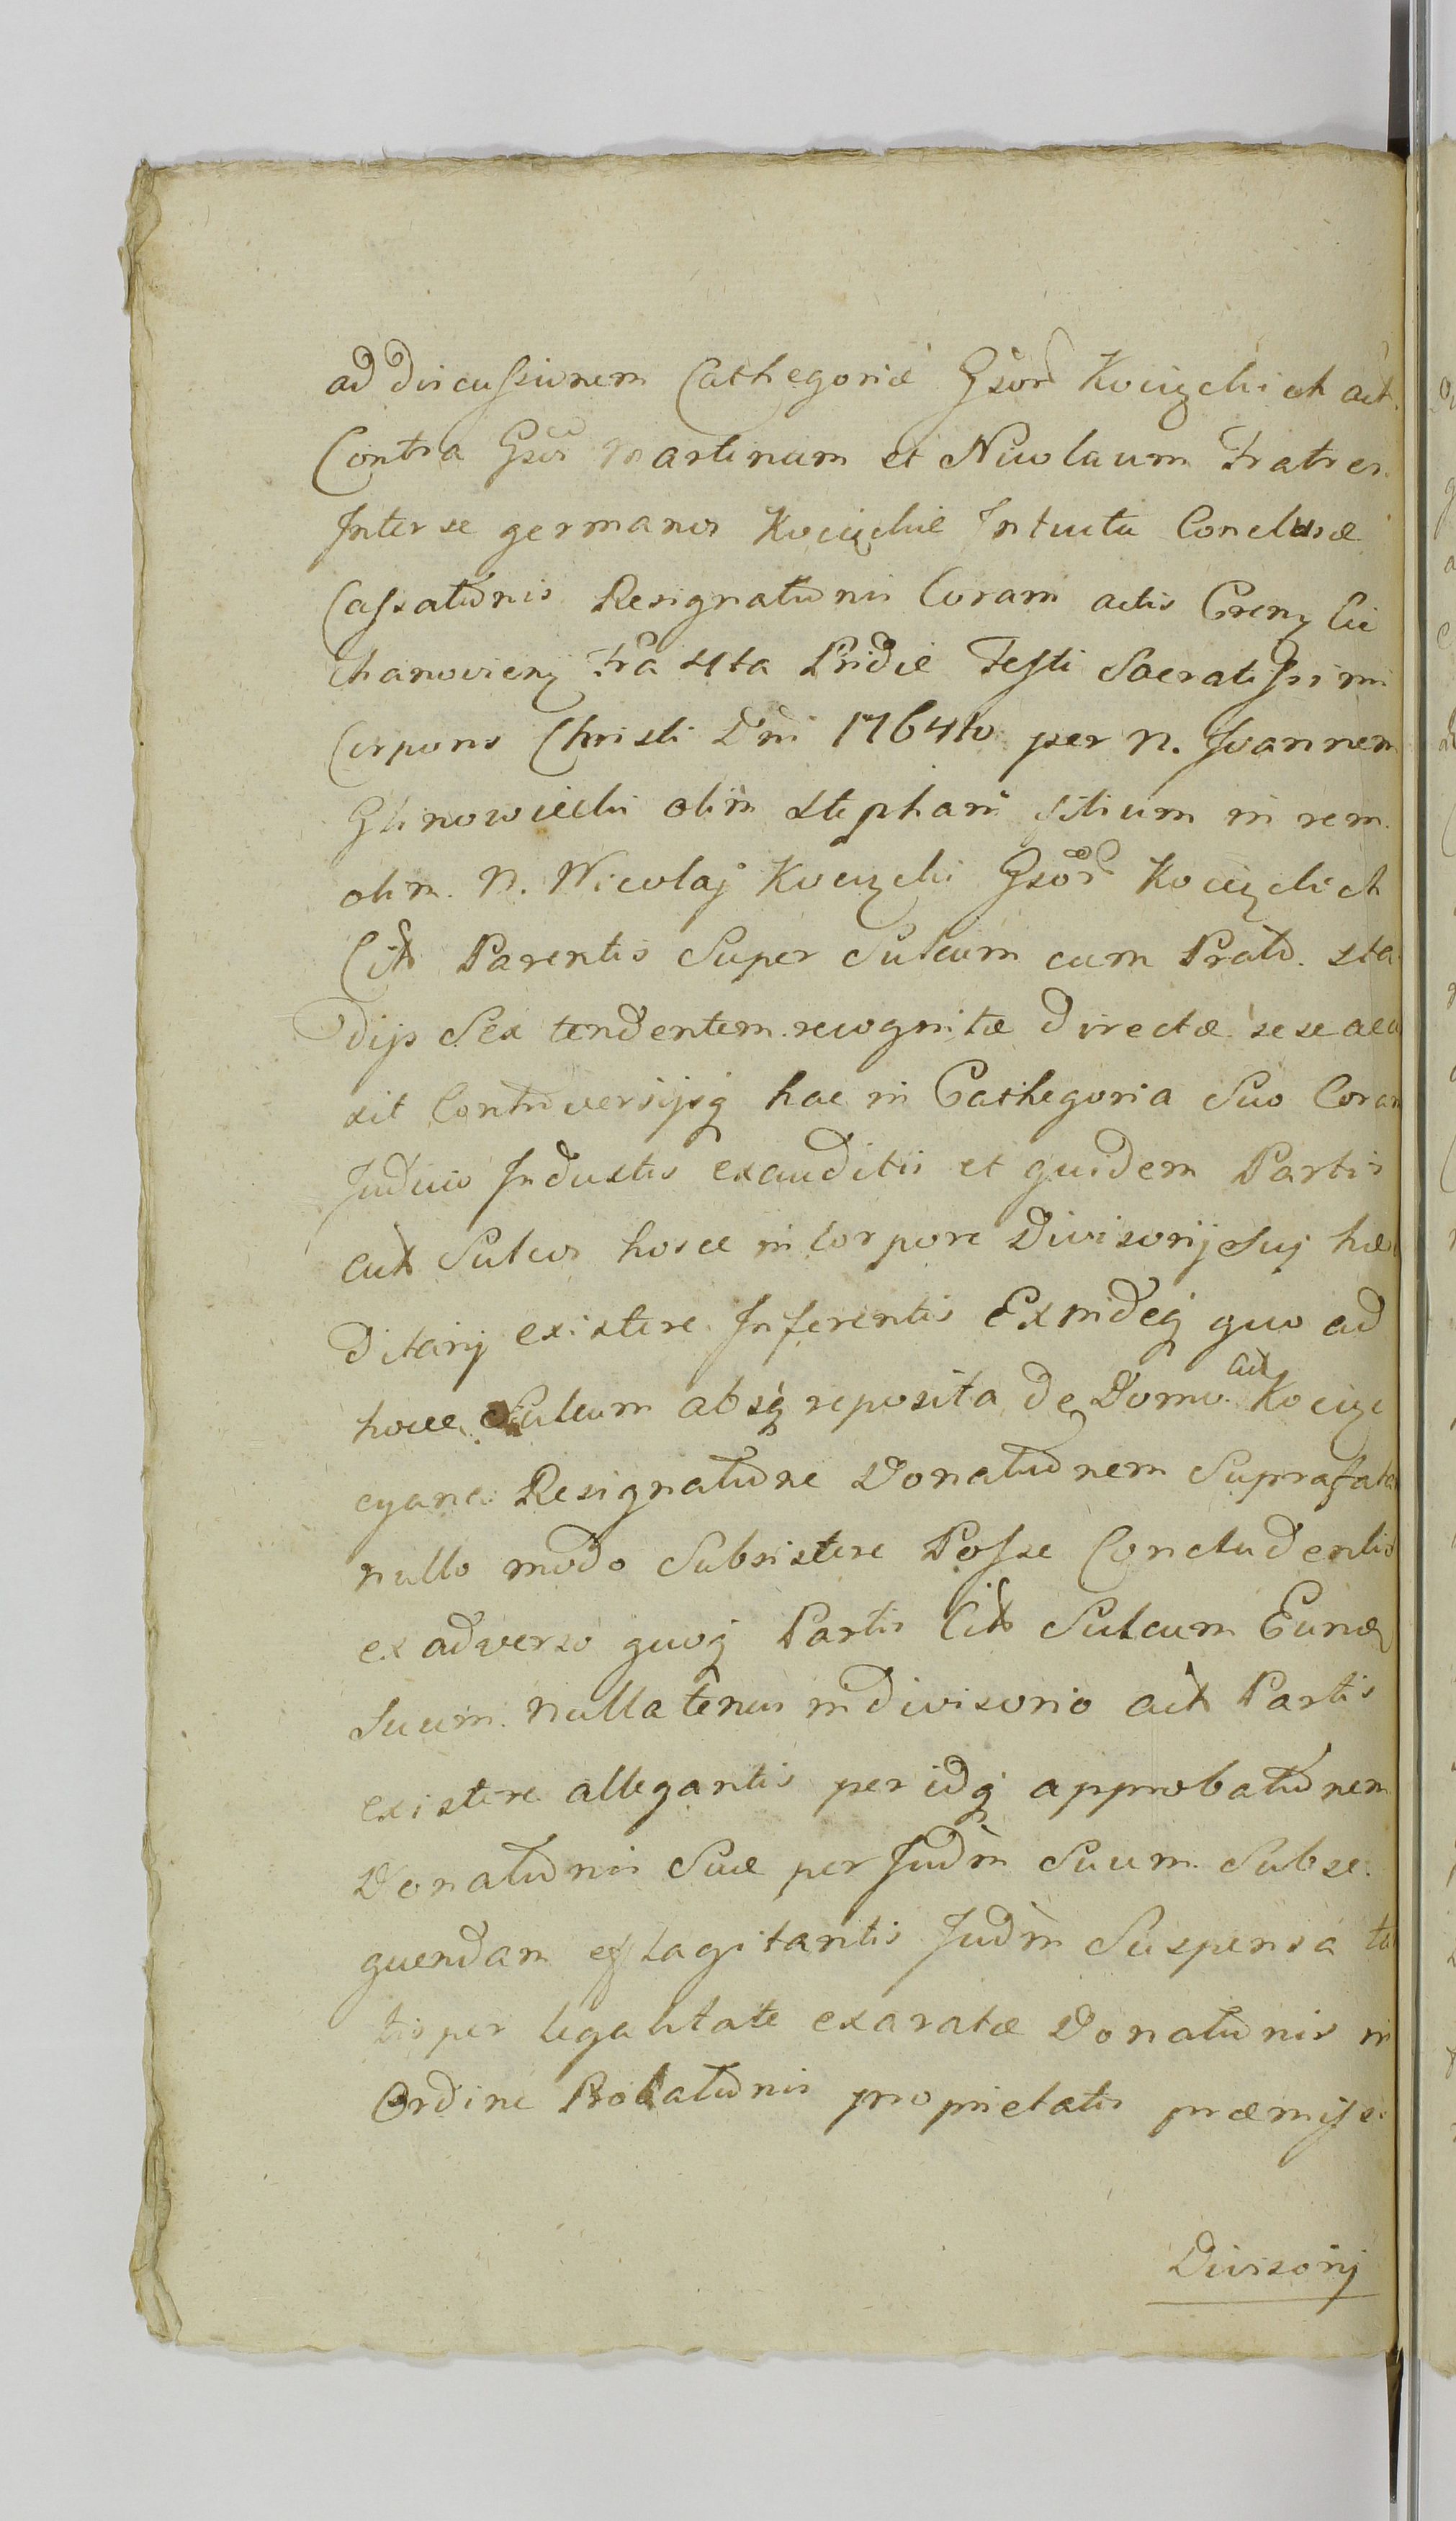 ad discussionem Cathegoriæ Gsorũ Kocięckich act.
Contra Gsos Martinum et Nicolaum Fratres
Inter se germanos Kocięckie Intuitu Conclusæ
Cassationis Resignationis Coram actis Crens Cie
chanoviens Fra 4ta Pridie Festi Sacratissimi
Corporis Christi Dni 1764to per N. Joannem
Glinowiecki olim Stephani filium in rem
olim N. Nicolaj Kocięcki Gsorũ Kocięckich
Citt Parentis Super Sulcum cum Prato sta
dijs Sex tendentem recognitæ directæ sese
xit Controversijsq hac in Cathegoria Suo Coram
Judicio Inductis exauditis et quidem Partis
act Sulcos hosce in Corpore Divisorij Suj hæ
ditarij existere Inferentis Exindeq quo ad
hocce Sulcum absq reposita de Domo act Kocię
cyane Resignatione Donationem Suprafata
nullo modo Subsistere Posse Concludentis
ex adverso quoq Partis Citt Sulcum Eund
Suum nullatenus in divisorio act Partis
existere allegantis per idq approbationem
Donationis Suæ per Judm Suum Subse
quendam efflagitantis Judm Suspensa tan
tisper legalitate exaratæ Donationis in
Ordine Probationis proprietatis præmiss
Divisorij